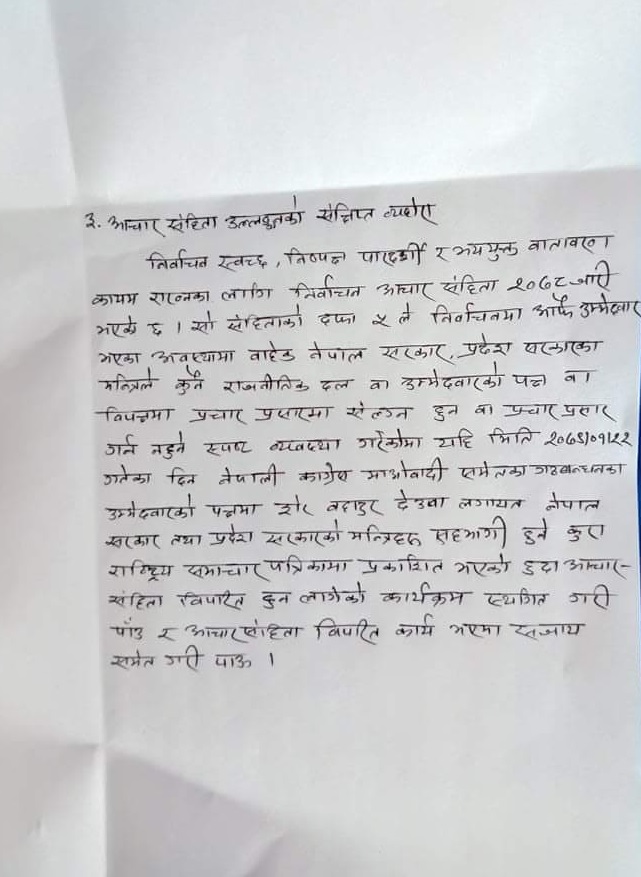 ३. आचार संहिता उल्लङ्घनको संक्षिप्त व्यहोरा
निर्वाचन स्वच्छ, निष्पक्ष पारदर्शी र भयमुक्त वातावरण
कायम राख्नका लागि निर्वाचन आचार संहिता २०७८ जारी
भएको छ । सो संहिताको दफा ५ ले निर्वाचनमा आफै उम्मेदवार
भएका अवस्थामा वाहेक नेपाल सरकार, प्रदेश सरकारका
मन्त्रिले कुनै राजनीतिक दल वा उम्मेदवारको पक्ष वा
विपक्षमा प्रचार प्रसारमा संलग्न हुन वा प्रचार प्रसार
गर्न नहुने स्पष्ट व्यवस्था गरेकोमा यहि मिति २०७९।०१।२२
गतेका दिन नेपाली काग्रेस माओवादी समेतका गठबन्धनका
उम्मेदवारको पक्षमा शेर बहादुर देउवा लगायत नेपाल
सरकार तथा प्रदेश सरकारको मन्त्रिहरु सहभागी हुने कुरा
राष्ट्रिय समाचार पत्रिकामा प्रकाशित भएको हुदा आचार-
संहिता विपरित हुन लागेको कार्यक्रम स्थगित गरी
पाँउ र आचारसंहिता विपरित कार्य भएमा सजाय
समेत गरी पाऊ ।